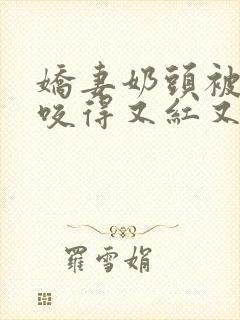 嬌妻奶頭被
咬得又紅又
羅雪娟